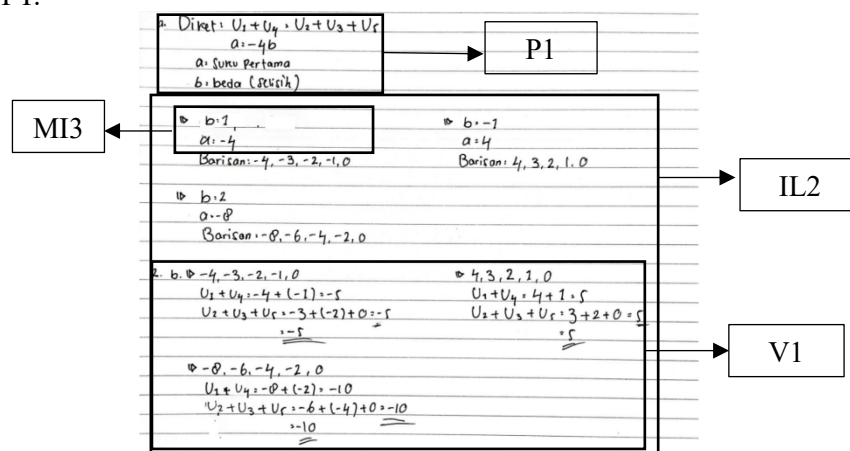 a. Diket: U1 + U4 = U2 + U3 + U5
a = -4b
a = Suku Pertama
b = beda (selisih)
P1
MI3
b = 1
a = -4
Barisan = -4, -3, -2, -1, 0
b = -1
a = 4
Barisan = 4, 3, 2, 1, 0
IL2
b = 2
a = -8
Barisan = -8, -6, -4, -2, 0
2. b. -4, -3, -2, -1, 0
U1 + U4 = -4 + (-1) = -5
U2 + U3 + U5 = -3 + (-2) + 0 = -5
= -5
4, 3, 2, 1, 0
U1 + U4 = 4 + 1 = 5
U2 + U3 + U5 = 3 + 2 + 0 = 5
= 5
V1
-8, -6, -4, -2, 0
U1 + U4 = -8 + (-2) = -10
U2 + U3 + U5 = -6 + (-4) + 0 = -10
= -10